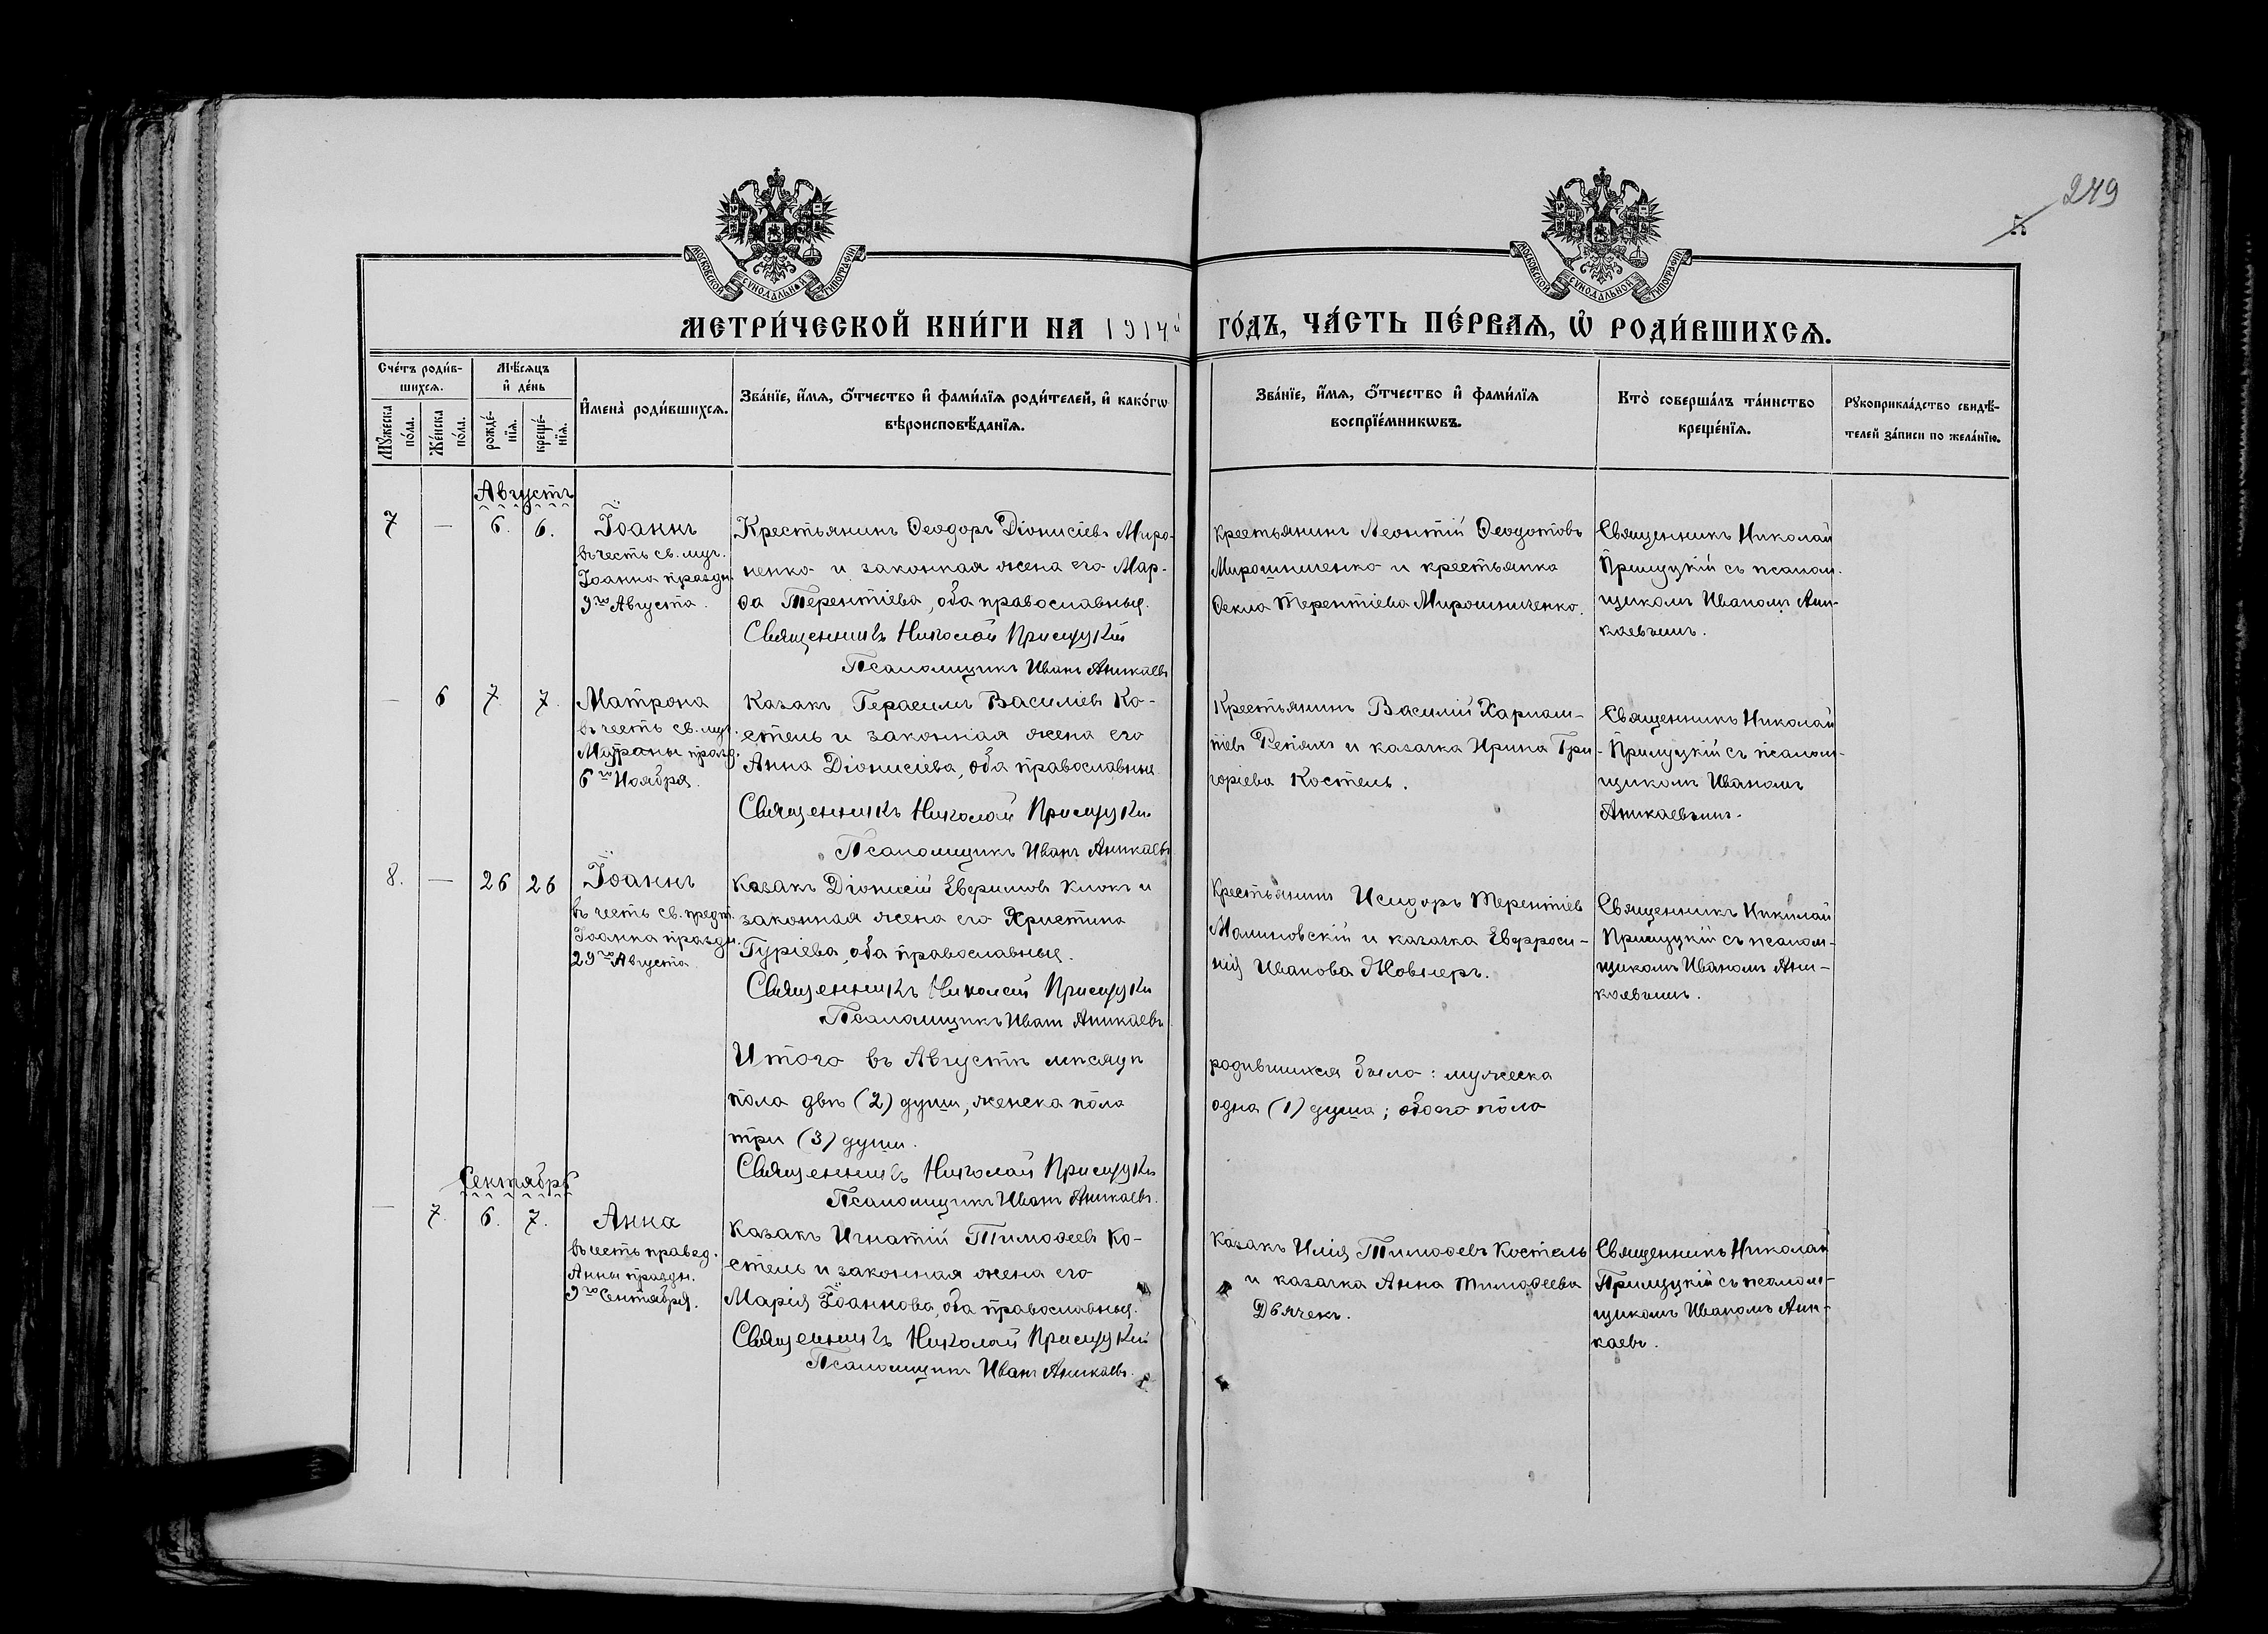 249
МОСКОВСКОЙ СѴНОДАЛЬНОЙ ТИПОГРАФІИ
МОСКОВСКОЙ СѴНОДАЛЬНОЙ ТИПОГРАФІИ
МЕТРИ́ЧЕСКОЙ КНИ́ГИ НА 1914й ГО́ДЪ, ЧА́СТЬ ПЕ́РВАѦ, Ѡ҆ РОДИ́ВШИХСѦ.
Сче́тъ роди́в-
шихсѧ.
Мꙋ́жеска
по́ла.
Же́нска
по́ла.
Мѣ́сѧцъ
и҆ де́нь
рожде́-
нїѧ.
креще́-
нїѧ.
И҆мена̀ роди́вшихсѧ.
Зва́нїе, и҆́мѧ, ѻ҆́тчество и҆ фами́лїѧ роди́телей, и҆ како́гѡ
вѣроисповѣ́данїѧ.
Зва́нїе, и҆́мѧ, ѻ҆́тчество и҆ фами́лїѧ
воспрїе́мникѡвъ.
Кто̀ соверша́лъ та́инство
креще́нїѧ.
Рꙋкоприкла́дство свидѣ́-
телей за́писи по жела́нїю.
Августъ
7 — 6. 6.
Іоаннъ
въ честь св. муч.
Іоанна праздн.
9го Августа.
Крестьянинъ Ѳеодоръ Діонисіевъ Миро-
ненко и законная жена его Мар-
ѳа Терентіева, оба православные.
Священникъ Николай Прилуцкій
Псаломщикъ Иванъ Аникаевъ
Крестьянинъ Леонтій Ѳеодотовъ
Мирошниченко и крестьянка
Ѳекла Терентіева Мирошниченко.
Священникъ Николай
Прилуцкій съ псалом-
щикомъ Иваномъ Ани-
каевымъ.
— 6 7 7.
Матрона
въ честь св. муч.
празд.
6го Ноября.
Казакъ Герасимъ Василіевъ Ко-
стель и законная жена его
Анна Діонисіева, оба православные
Священникъ Николай Прилуцкій
Псаломщикъ Иванъ Аникаевъ
Крестьянинъ Василій Харлам-
піевъ Репяхъ и казачка Ирина Гри-
горіева Костель.
Священникъ Николай
Прилуцкій съ псалом-
щикомъ Иваномъ
Аникаевымъ.
8. — 26 26
Іоаннъ
въ честь св. предт.
Іоанна праздн.
29го Августа
Казакъ Діонисій Евфимовъ Клокъ и
законная жена его Христина
Гуріева, оба православные.
Священникъ Николай Прилуцкій
Псаломщикъ Иванъ Аникаевъ
Крестьянинъ Исидоръ Терентіев
Малиновскій и казачка Евфроси-
нія Иванова Жовнеръ.
Священникъ Николай
Прилуцкій съ псалом-
щикомъ Иваномъ Ани-
каевымъ.
Итого въ Августѣ мѣсяцѣ родившихся было: мужеска
пола двѣ (2) души, женска пола одна (1) душа; обоего пола
три (3) души.
Священникъ Николай Прилуцкій
Псаломщикъ Иванъ Аникаевъ.
Сентябрь
— 7. 6. 7.
Анна
въ честь правед.
Анны праздн.
9го Сентября.
Казакъ Игнатій Тимоѳеевъ Ко-
стель и законная жена его
Марія Іоаннова, оба православные.
Священникъ Николай Прилуцкій
Псаломщикъ Иванъ Аникаевъ.
Казакъ Илія Тимоѳеевъ Костель
и казачка Анна Тимоѳеева
Дьячекъ.
Священникъ Николай
Прилуцкій съ псалом-
щикомъ Иваномъ Ани-
каевъ.